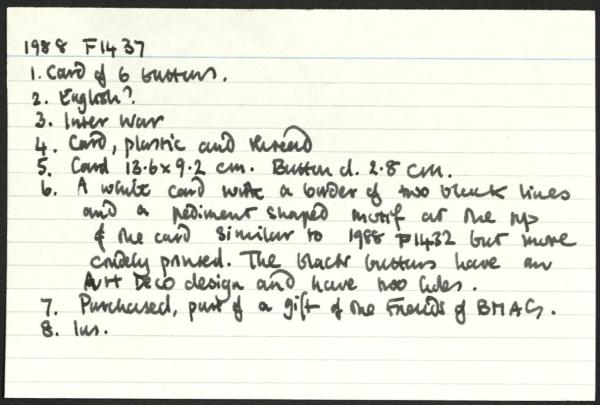 1988 F1437
1. Card of 6 buttons.
2. English?
3. Inter War
4. Card, plastic and thread
5. Card 13.6 x 9.2 cm. Button d. 2.8 cm.
6. A white card with a border of two black lines
and a pediment shaped motif at the top
of the card similar to 1988 F1432 but more
crudely printed. The black buttons have an
Art Deco design and have two holes.
7. Purchased, part of a gift of the Friends of BMAG.
8. Ins.